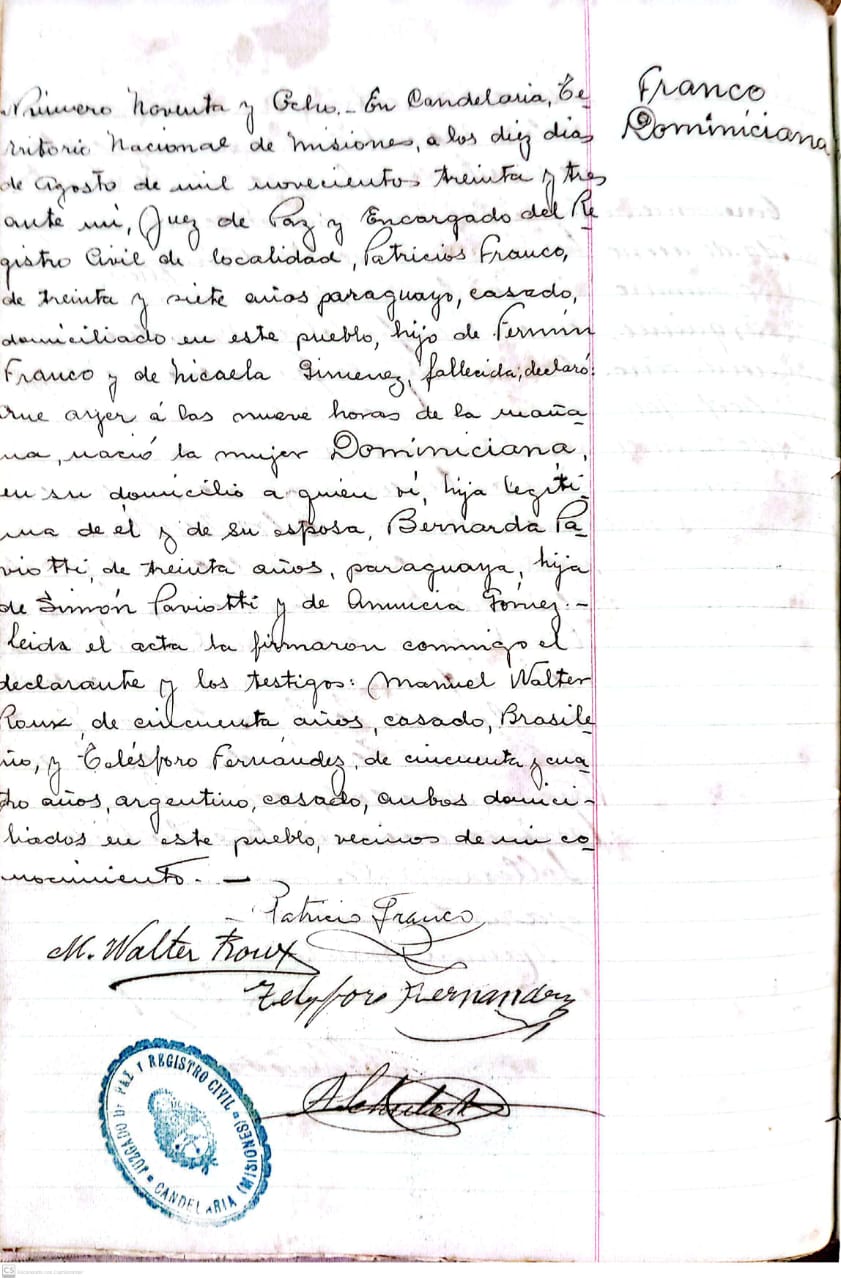 Número Noventa y Ocho._ En Candelaria, Te-
rritorio Nacional de Misiones, a los diez dias
de Agosto de mil novecientos treinta y tres
ante mí, Juez de Paz y Encargado del Re
gistro Civil de localidad, Patricios Franco,
de treinta y siete años paraguayo, casado,
domiciliado en este pueblo, hijo de Fermín
Franco y de Micaela Gimenez, fallecida, declaró:
que ayer á las nueve horas de la maña
na, nació la mujer Dominiciana,
en su domicilio a quien ví, hija legíti-
ma de él y de su esposa, Bernarda Pa
viotti, de treinta años, paraguaya, hija
de Simón Paviotti y de Anuncia Gómez.-
Leida el acta la firmaron conmigo el
declarante y los testigos: Manuel Walter
Roux, de cincuenta años, casado, Brasile
ño, y Telésforo Fernández, de cincuenta y cua
tro años, argentino, casado, ambos domici-
liados en este pueblo, vecinos de mi co
nocimiento. —
Franco
Dominiciana
- Patricio Franco
M. Walter Roux
Telesforo Fernandez
JUZGADO DE PAZ Y REGISTRO CIVIL
CANDELARIA (MISIONES)
CS